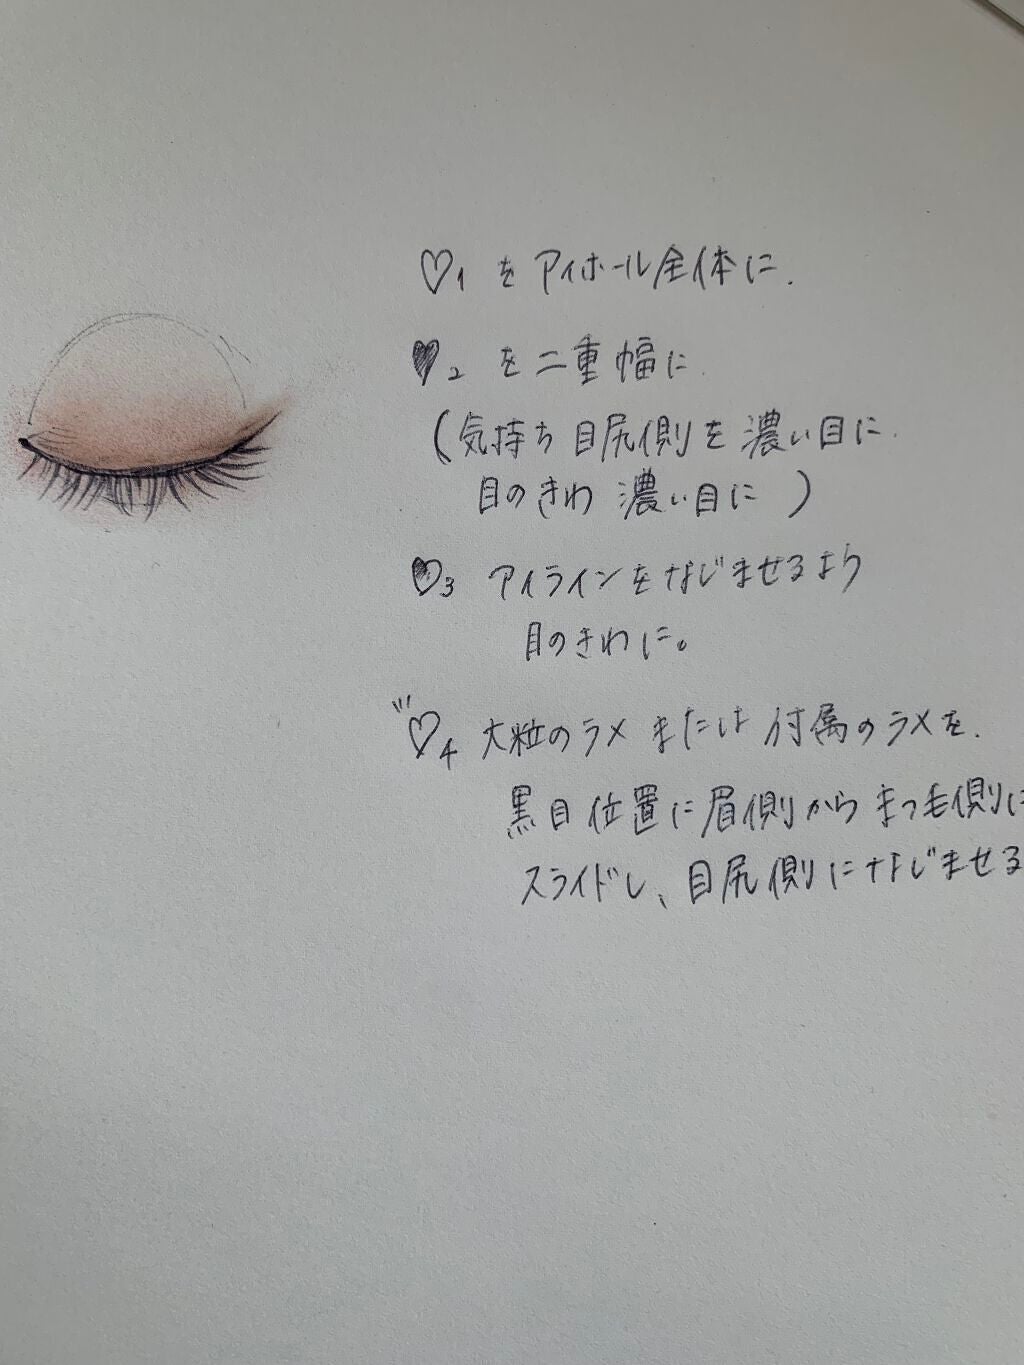 ♡1 を アイホール全体に.
♥2 を 二重幅に.
(気持ち 目尻側を 濃い目に.
目のきわ 濃い目に )
♥3 アイラインをなじませるよう
目のきわに。
♡4 大粒のラメ または 付属のラメを.
黒目位置に眉側からまつ毛側に
スライドし、目尻側になじませる